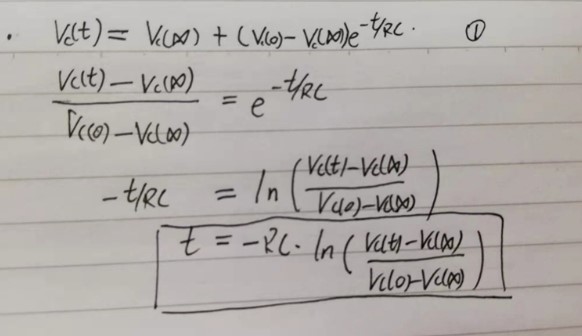 . Vc(t) = Vc(∞) + (Vc(0) - Vc(∞))e^{-t/RC}. ①
\frac{Vc(t) - Vc(∞)}{Vc(0) - Vc(∞)} = e^{-t/RC}
-t/RC = ln(\frac{Vc(t) - Vc(∞)}{Vc(0) - Vc(∞)})
t = -RC · ln(\frac{Vc(t) - Vc(∞)}{Vc(0) - Vc(∞)})